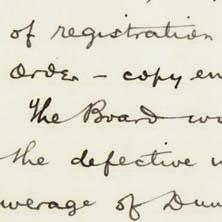 of registration
Order – copy en
The Board wo
the defective
werage of Dun